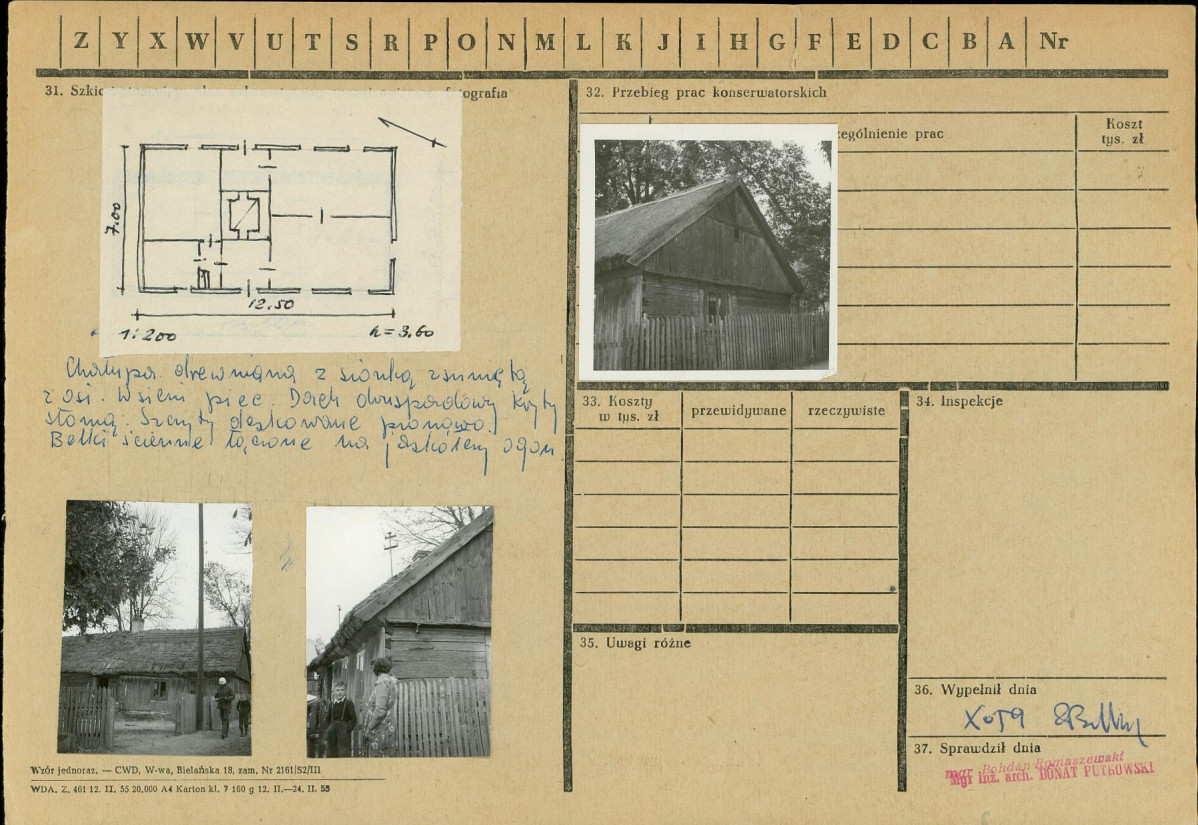 Z Y X W V U T S R P O N M L K J I H G F E D C B A Nr
31. Szkic
fotografia
7.00
12.50
1:200
h = 3.60
Chałupa drewniana z sionką zsuniętą
z osi. W sieni piec. Dach dwuspadowy kryty
słomą. Szczyty deskowane pionowo.
Belki ścienne łączone na jaskółczy ogon
Wzór jednoraz. — CWD, W-wa, Bielańska 18, zam. Nr 2161/S2/III
WDA. Z. 461 12. II. 55 20,000 A4 Karton kl. 7 160 g 12. II.—24. II. 55
32. Przebieg prac konserwatorskich
zególnienie prac
Koszt
tys. zł
33. Koszty
w tys. zł
przewidywane
rzeczywiste
34. Inspekcje
35. Uwagi różne
36. Wypełnił dnia
X 59
37. Sprawdził dnia
mgr Bohdan Romaszewski
Mgr inż. arch. DONAT PUTKOWSKI